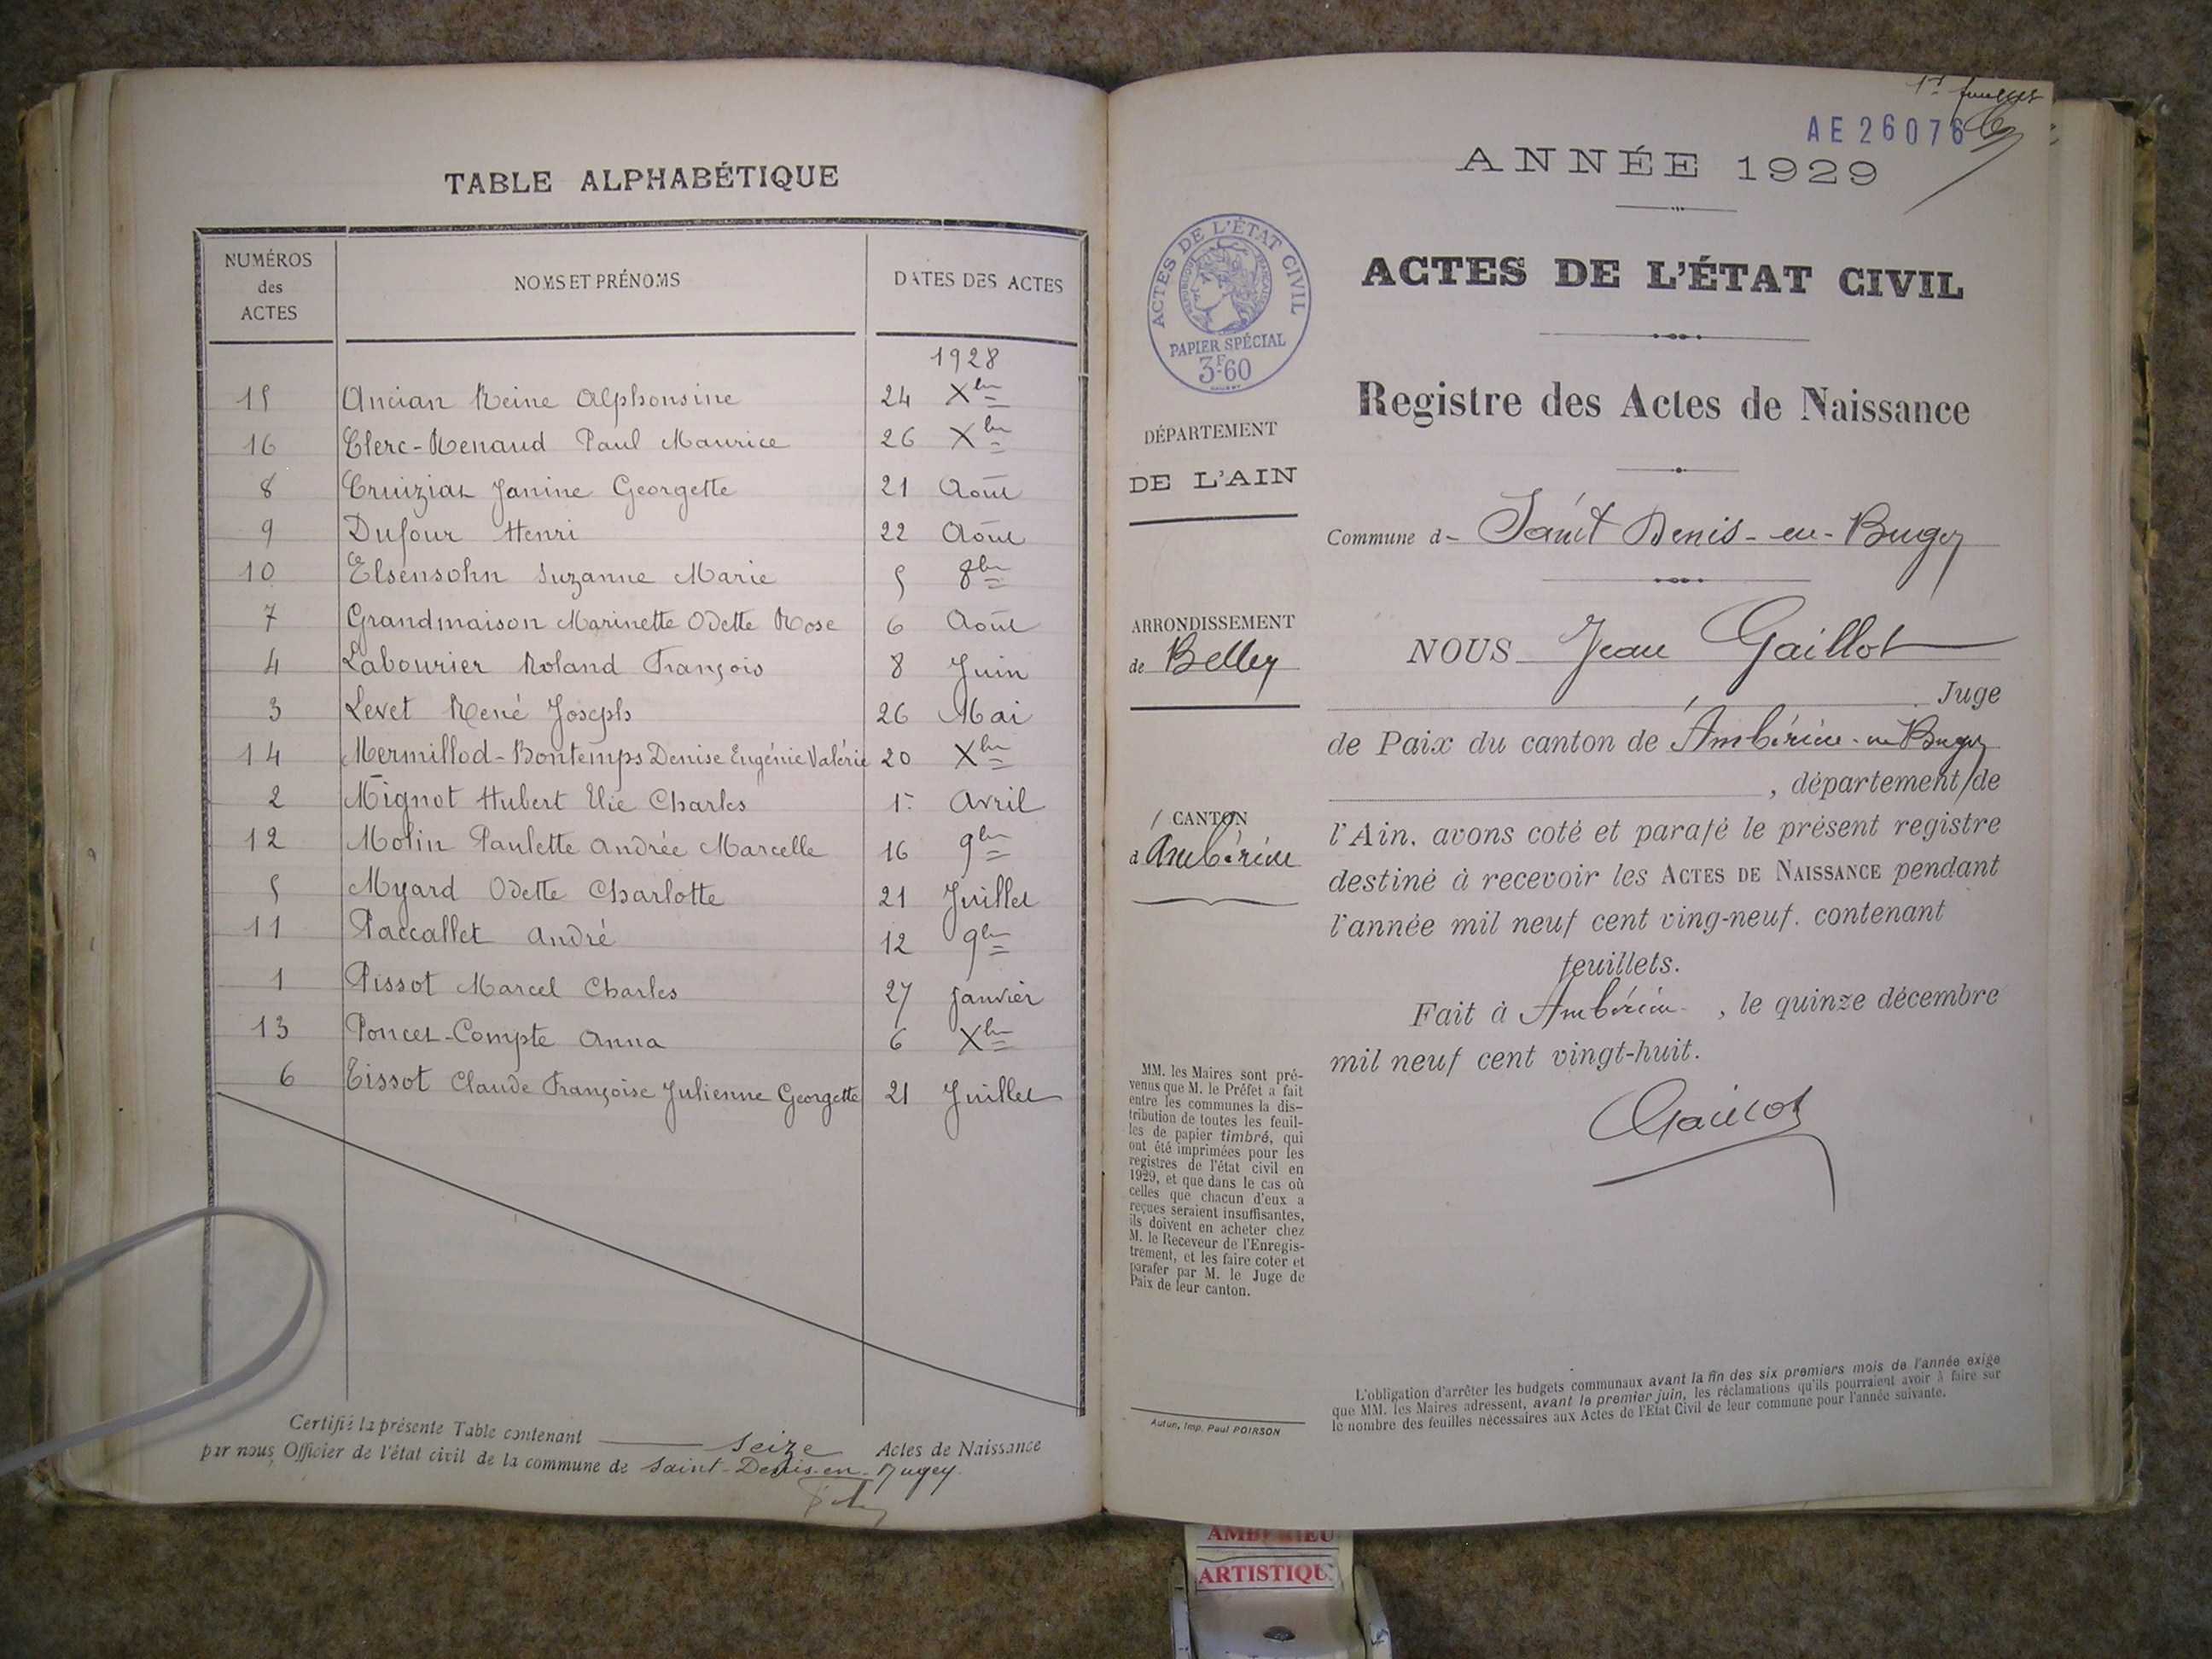 TABLE ALPHABÉTIQUE
NUMÉROS des ACTES NOMS ET PRÉNOMS DATES DES ACTES
1928
15 Ancian Reine Alphonsine 24 Xbre
16 Clerc-Renaud Paul Maurice 26 Xbre
8 Cruiziat Janine Georgette 21 Août
9 Dufour Henri 22 Août
10 Elsensohn Suzanne Marie 5 8bre
7 Grandmaison Marinette Odette Rose 6 Août
4 Labourier Roland François 8 Juin
3 Levet René Joseph 26 Mai
14 Mermillod-Bontemps Denise Eugénie Valérie 20 Xbre
2 Mignot Hubert Elie Charles 1er Avril
12 Molin Paulette Andrée Marcelle 16 9bre
5 Myard Odette Charlotte 21 Juillet
11 Paccallet André 12 9bre
1 Pissot Marcel Charles 27 janvier
13 Poncet-Compte Anna 6 Xbre
6 Tissot Claude Françoise Julienne Georgette 21 Juillet
Certifié la présente Table contenant seize Actes de Naissance
par nous, Officier de l'état civil de la commune de Saint-Denis-en-Bugey
AE 26076
ANNÉE 1929
ACTES DE L'ÉTAT CIVIL
RÉPUBLIQUE FRANÇAISE
PAPIER SPÉCIAL
3F.60
ACTES DE L'ÉTAT CIVIL
Registre des Actes de Naissance
DÉPARTEMENT
DE L'AIN
ARRONDISSEMENT
de Belley
CANTON
d'Ambérieu
MM. les Maires sont pré-
venus que M. le Préfet a fait
entre les communes la dis-
tribution de toutes les feuil-
les de papier timbré, qui
ont été imprimées pour les
registres de l'état civil en
1929, et que dans le cas où
celles que chacun d'eux a
reçues seraient insuffisantes,
ils doivent en acheter chez
M. le Receveur de l'Enregis-
trement, et les faire coter et
parafer par M. le Juge de
Paix de leur canton.
Autun, Imp. Paul POIRSON
Commune d- Saint Denis-en-Bugey
NOUS Jean Gaillot
Juge
de Paix du canton de Ambérieu-en-Bugey
, département de
l'Ain, avons coté et parafé le présent registre
destiné à recevoir les ACTES DE NAISSANCE pendant
l'année mil neuf cent ving-neuf. contenant
feuillets.
Fait à Ambérieu , le quinze décembre
mil neuf cent vingt-huit.
Gaillot
L'obligation d'arrêter les budgets communaux avant la fin des six premiers mois de l'année exige
que MM. les Maires adressent, avant le premier juin, les réclamations qu'ils pourraient avoir à faire sur
le nombre des feuilles nécessaires aux Actes de l'Etat Civil de leur commune pour l'année suivante.
ARTISTIQU